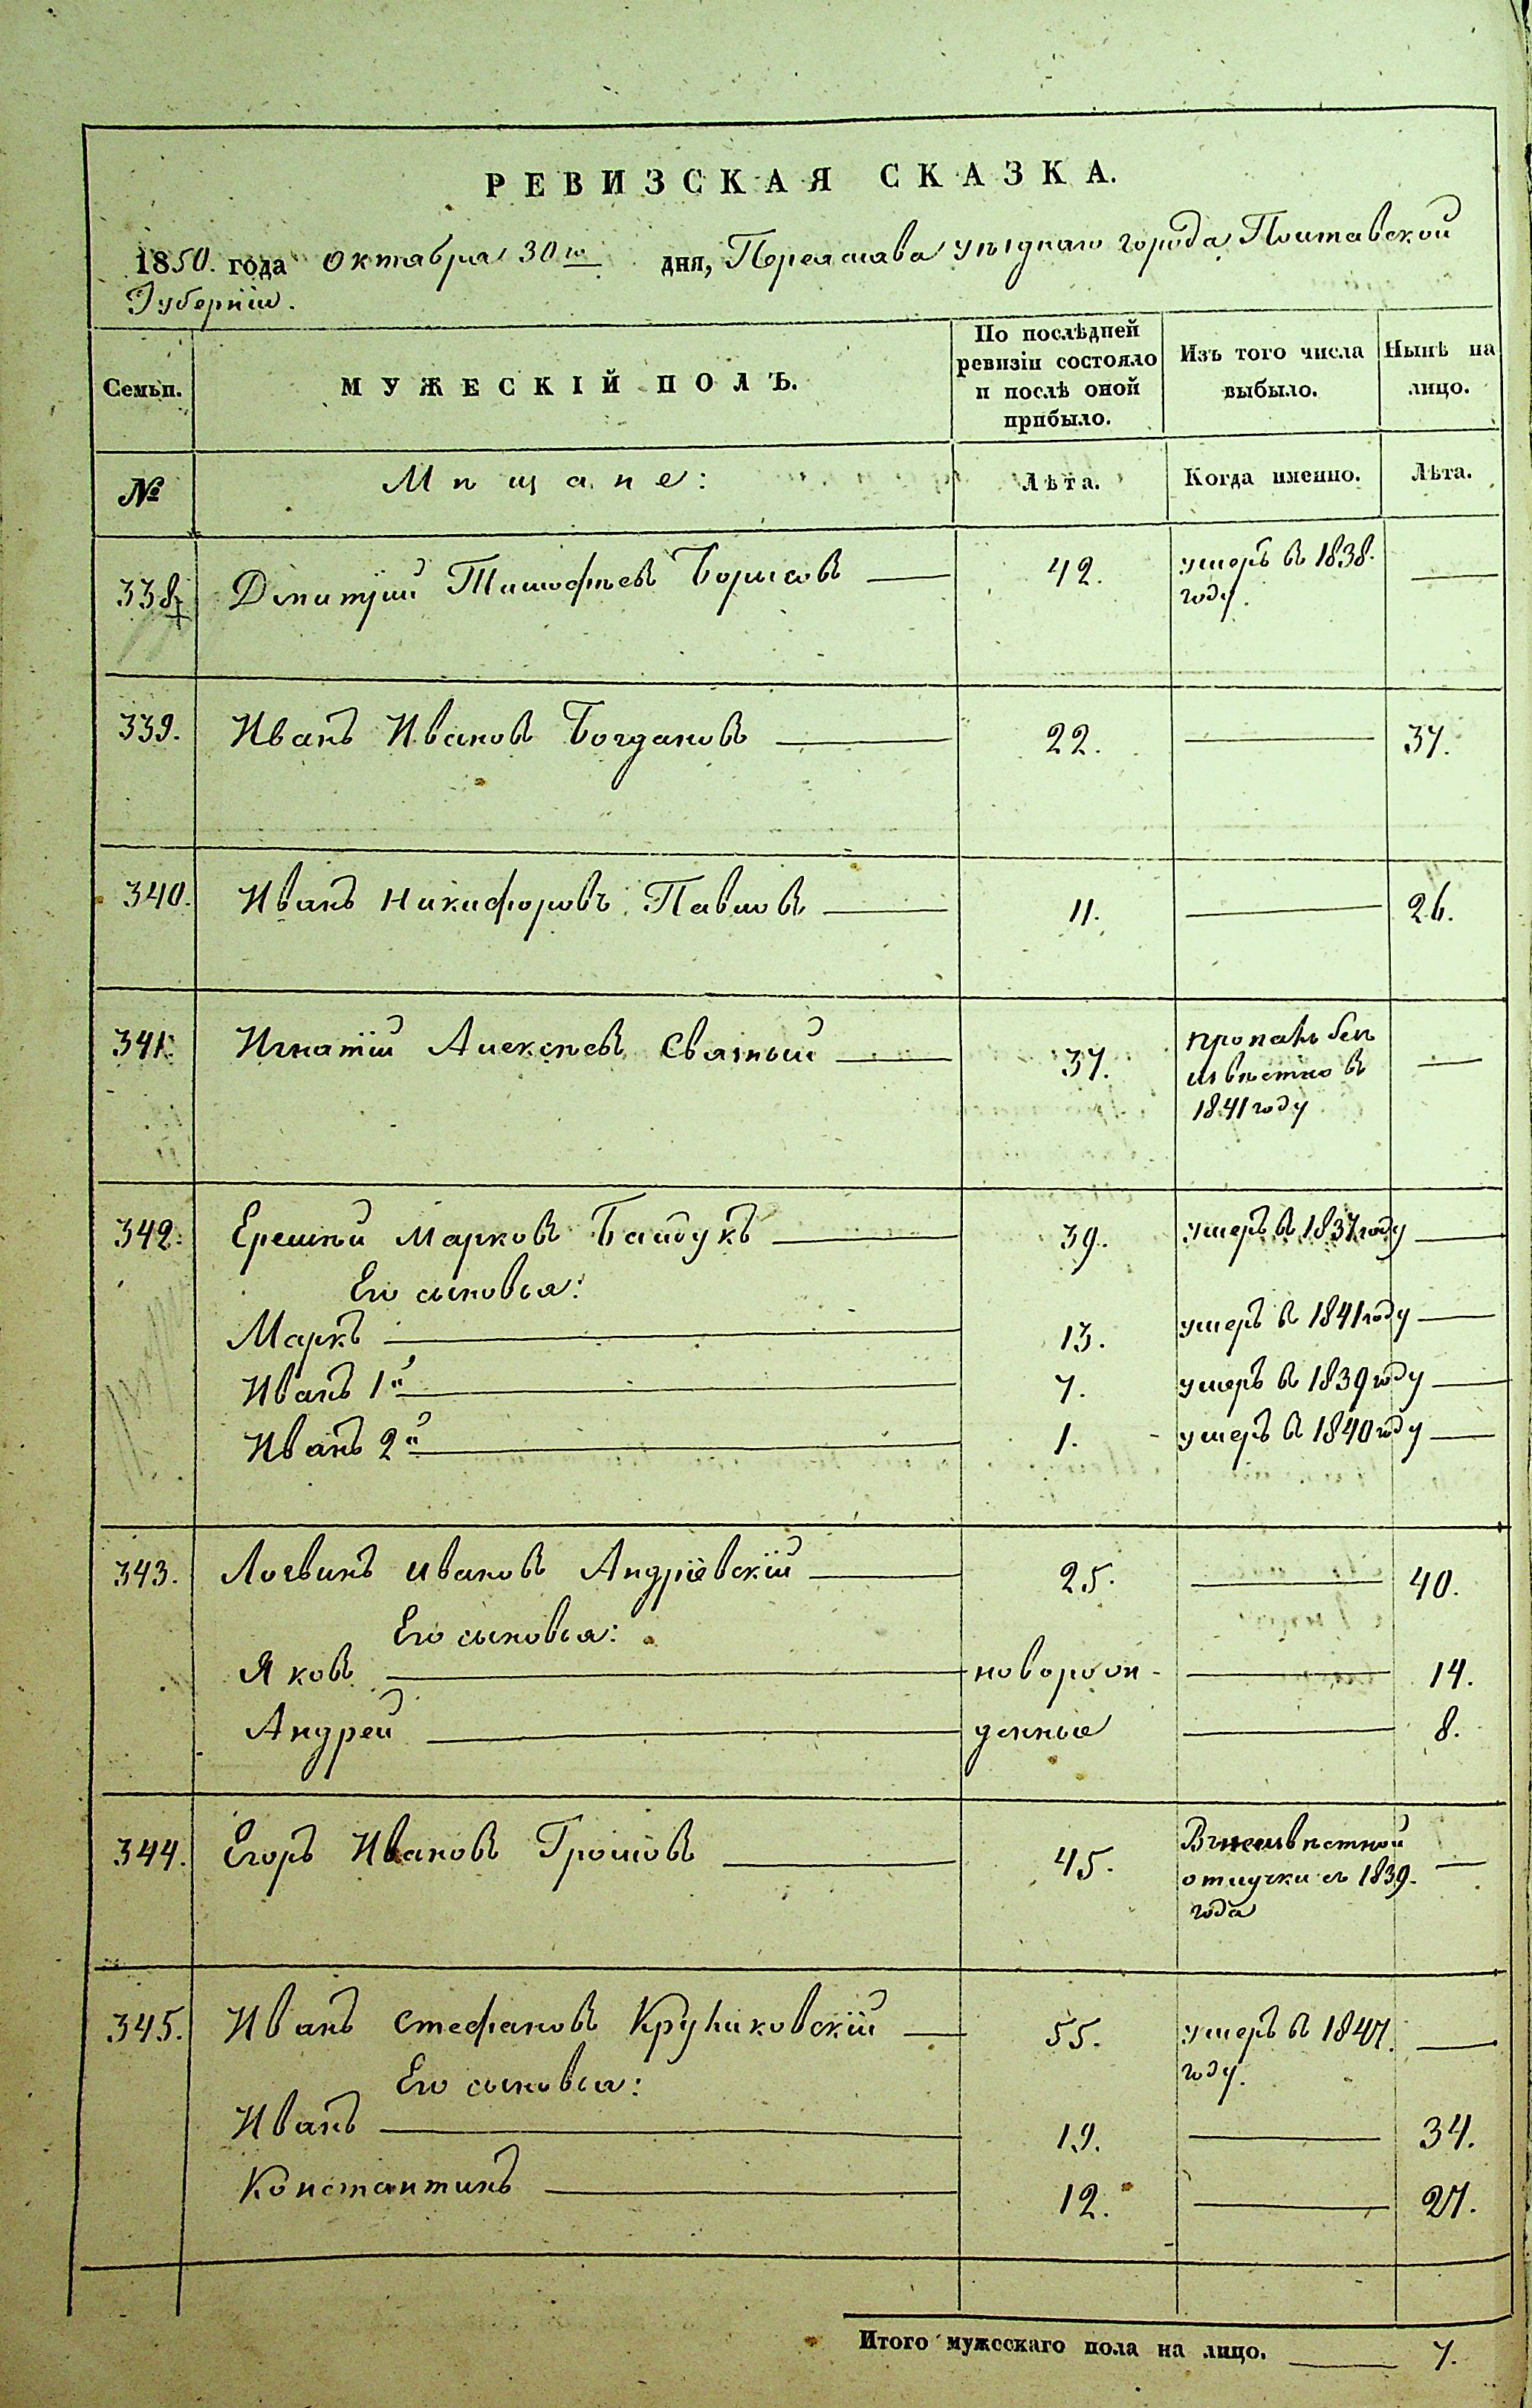 РЕВИЗСКАЯ СКАЗКА.
1850. года октября 30го дня, Переяслава уѣзднаго города Полтавской
Губерніи.
Семьи. МУЖЕСКІЙ ПОЛЪ. По послѣдней ревизіи состояло и послѣ оной прибыло. Изъ того числа выбыло. Нынѣ на лицо.
№ Мѣщане: Лѣта. Когда именно. Лѣта.
338. Дмитрій Тимофѣевъ Борисовъ — 42. умеръ въ 1838. —
году.
339. Иванъ Ивановъ Богдановъ — 22. — 37.
340. Иванъ Никифоровъ Павловъ — 11. — 26.
341. Игнатій Алексѣевъ Святный — 37. пропалъ без —
извѣстно въ
1841 году
342. Еремѣй Марковъ Байдукъ — 39. умеръ въ 1837 году —
Его сыновья:
Маркъ — 13. умеръ въ 1841 году —
Иванъ 1й — 7. умеръ въ 1839 году —
Иванъ 2й — 1. умеръ въ 1840 году —
343. Логвинъ Ивановъ Андріевскій — 25. — 40.
Его сыновья:
Яковъ — новорож- — 14.
Андрей — денные — 8.
344. Егоръ Ивановъ Громовъ — 45. Въ неизвѣстной —
отлучки съ 1839.
года
345. Иванъ Стефановъ Крупиковскій — 55. умеръ въ 1847. —
году.
Его сыновья:
Иванъ — 19. — 34.
Константинъ — 12. — 27.
Итого мужескаго пола на лицо. — 7.